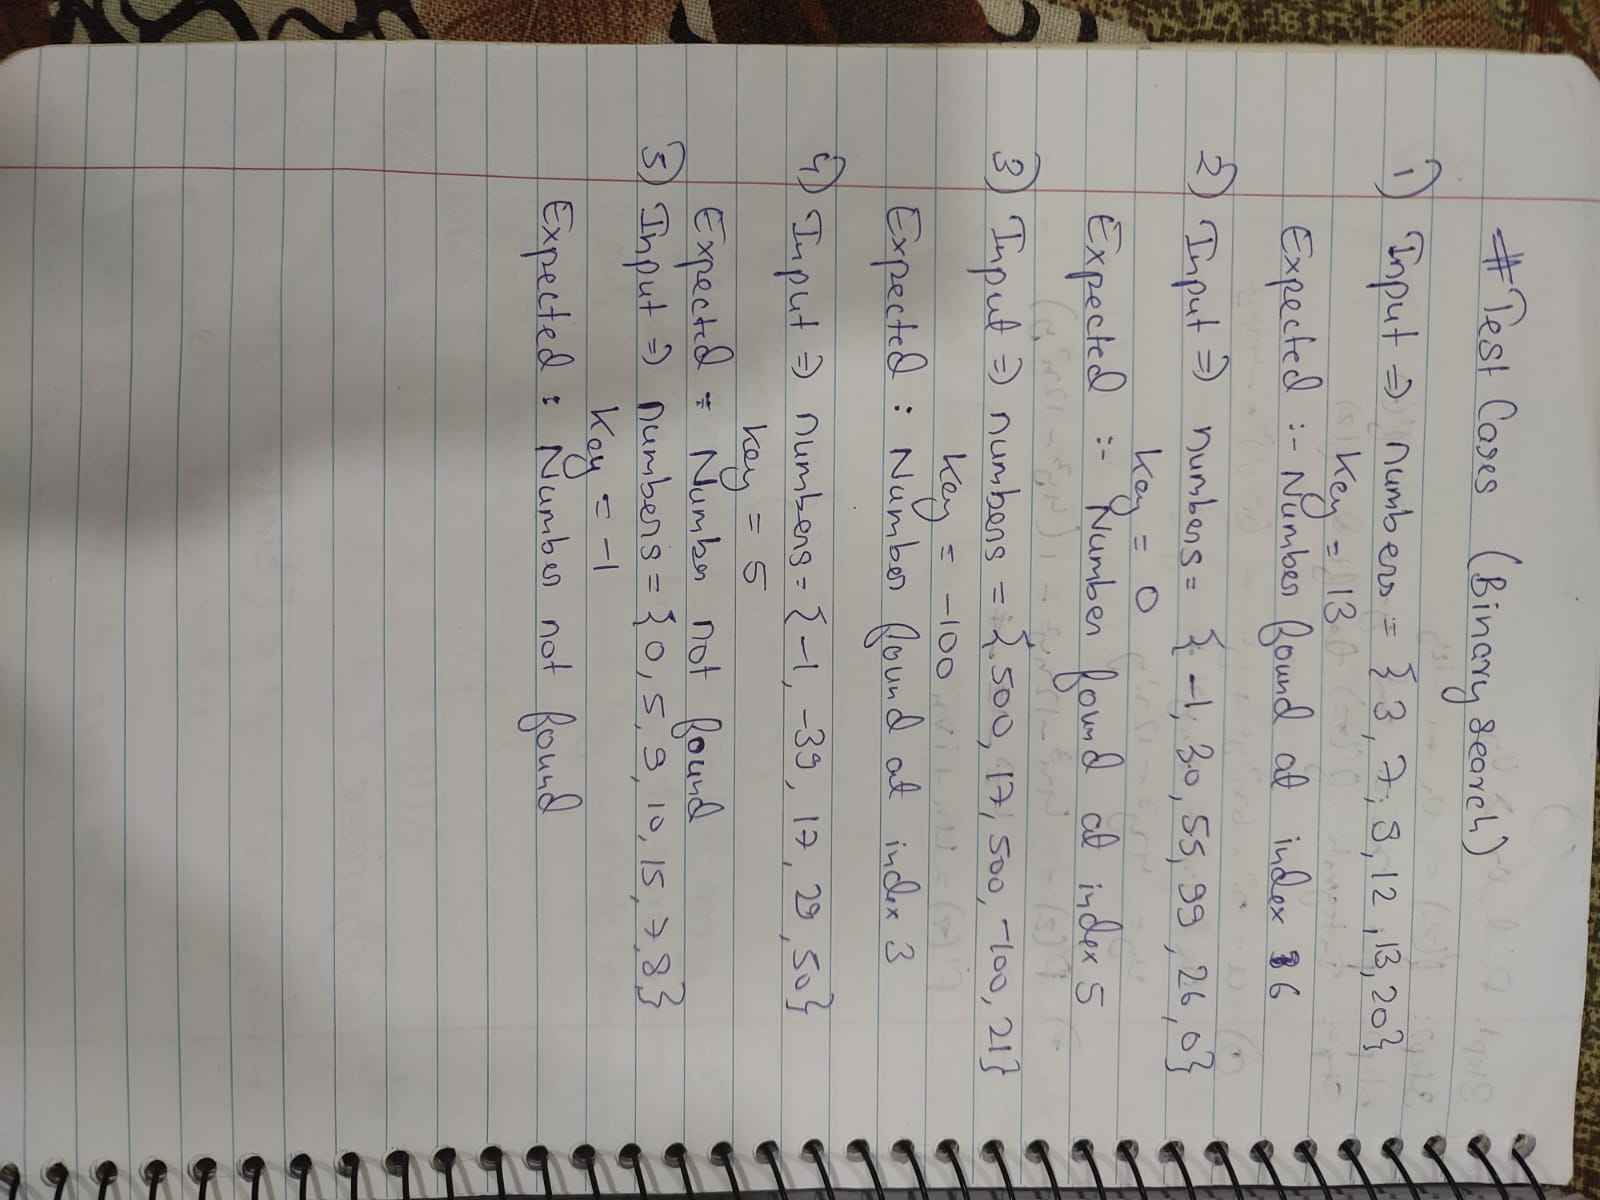 # Test Cases (Binary search)
1) Input => numbers = {3, 7, 9, 12, 13, 20}
Key = 13
Expected :- Number found at index 6
2) Input => numbers = {-1, 30, 55, 99, 26, 0}
Key = 0
Expected :- Number found at index 5
3) Input => numbers = {500, 17, 500, -100, 21}
Key = -100
Expected : Number found at index 3
4) Input => numbers = {-1, -39, 17, 29, 50}
Key = 5
Expected = Number not found
5) Input => numbers = {0, 5, 9, 10, 15, 7, 8}
Key = -1
Expected : Number not found